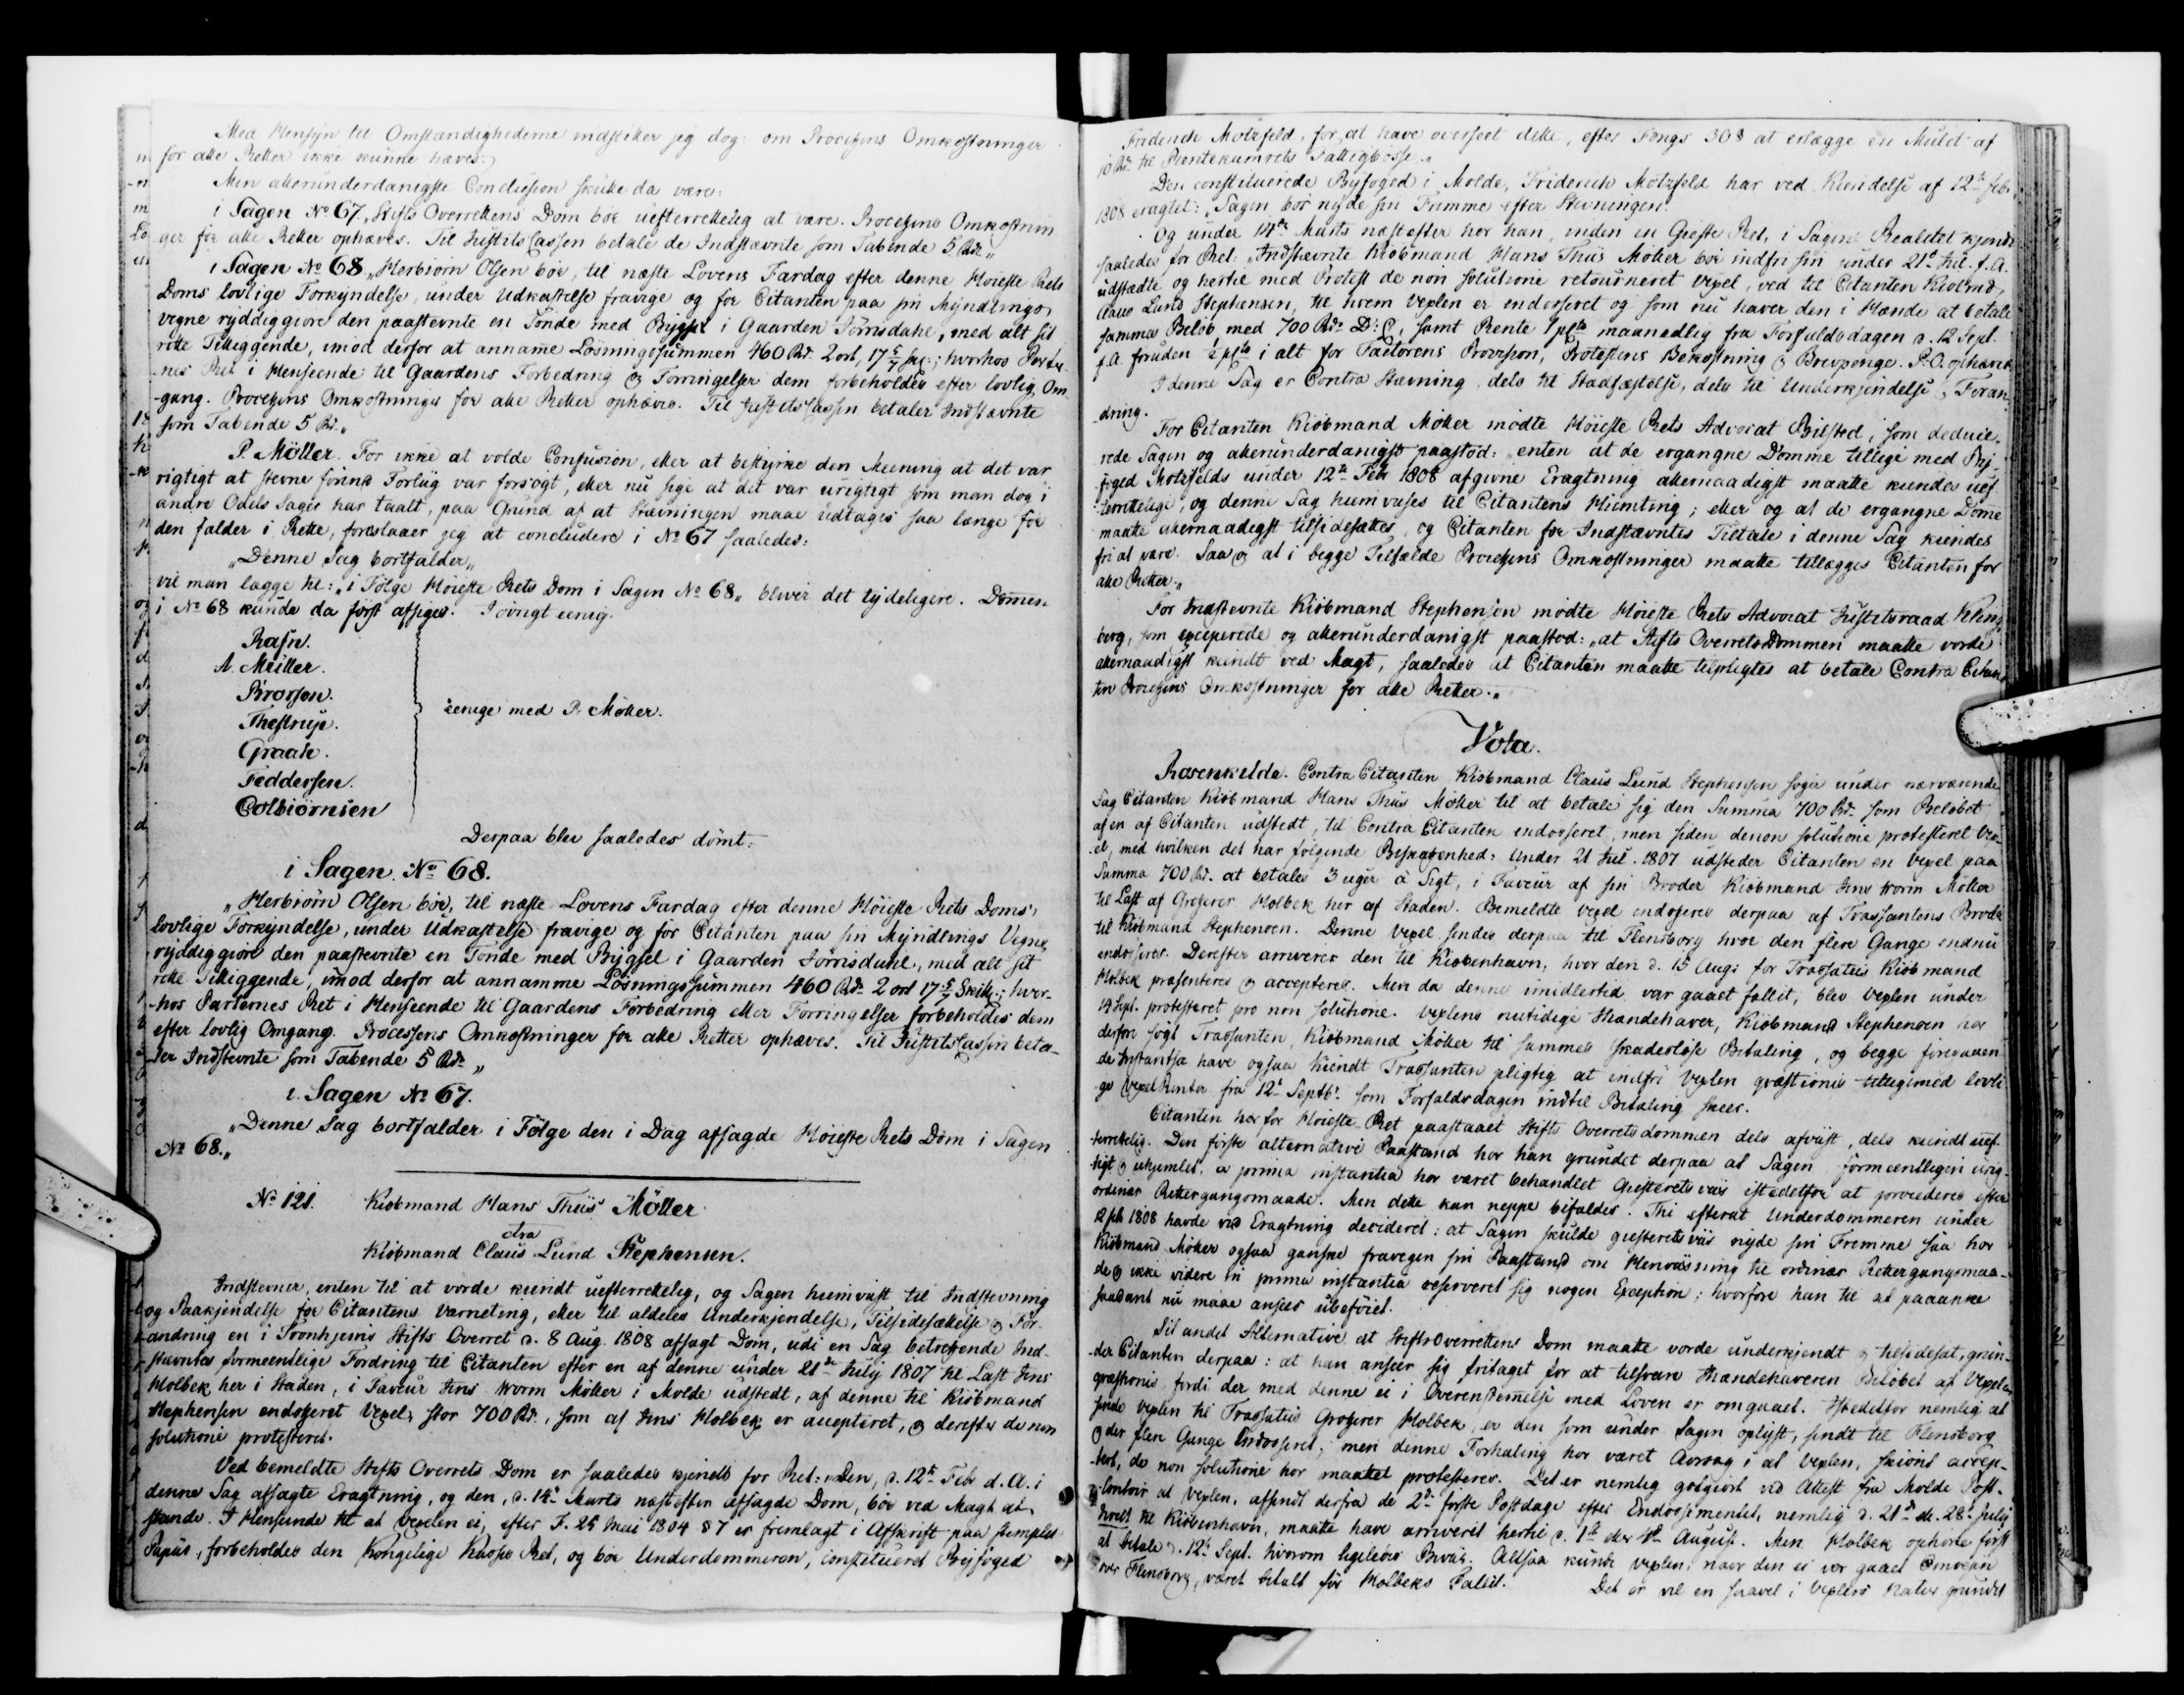 Med Hensyn til Omstændighederne indstiller jeg dog: om Processens Omkostninger
for alle Retter ikke kunne hæves.
Min allerunderdanigste Conclusion skulle da være:
i Sagen No 67, Stifts Overrettens Dom bör uefterrettelig at være. Processens Omkostnin
ger for alle Retter ophæves. Til JustitsCassen betale de Indstævnte som Tabende 5 Rd.„
i Sagen No 68 „Herbiörn Olsen bör, til næste Lovens Fardag efter denne Höieste Rets
Doms lovlige Forkyndelse, under Udkastelse fravige og for Citanten paa sin Myndlings
vegne ryddiggiöre den paastevnte en Tönde med Bygsel i Gaarden Törrisdahl, med alt sit
rette Tilleggende, imod derfor at annamme Lösningssummen 460 Rd. 2 ort, 17 5/7 sk:; hvorhos Parter
nes Ret i Henseende til Gaardens Forbedring og Forringelser dem forbeholdes efter lovlig Om
gang. Processens Omkostninger for alle Retter ophæves. Til JustitsCassen betaler Indstævnte
som Tabende 5 Rd.„
P. Möller. For ikke at volde Confusion, eller at bestyrke den Meening at det var
rigtigt at stevne förend Forlüg var forsögt, eller nu sige at det var urigtigt som man dog i
andre Odels Sager har taalt, paa Grund af at Stævningen maae udtages saa længe för
den falder i Rette, foreslaaer jeg at concludere i No 67 saaledes:
„Denne Sag bortfalder„
vil man lægge til: „i Fölge Höieste Rets Dom i Sagen No 68„ bliver det tydeligere. Dommen
i No 68 kunde da först afsiges. I övrigt eenig.
Rafn.
A. Müller.
Brorson.
Thestrup. eenige med P. Möller.
Graah.
Feddersen.
Colbiörnsen
Derpaa blev saaledes dömt:
i Sagen No 68.
„Herbiörn Olsen bör, til næste Lovens Fardag efter denne Höieste Rets Doms
lovlige Forkyndelse, under Udkastelse fravige og for Citanten paa sin Myndlings Vegne
ryddiggiöre den paastevnte en Tönde med Bygsel i Gaarden Törrisdahl, med alt sit
rette Tilleggende, imod derfor at annamme Lösningssummen 460 Rd. 2 ort 17 5/7 Skill:; hvor-
hos Parternes Ret i Henseende til Gaardens Forbedring eller Forringelser forbeholdes dem
efter lovlig Omgang. Processens Omkostninger for alle Retter ophæves. Til JustitsCassen beta-
ler Indstevnte som Tabende 5 Rd. „
i Sagen No 67.
„Denne Sag bortfalder i Fölge den i Dag afsagde Höieste Rets Dom i Sagen
No 68.„
No 121. Kiöbmand Hans Thiis Möller
ctra
Kiöbmand Claus Lund Stephensen.
Indstevner, enten til at vorde kiendt uefterrettelig, og Sagen hiemviist til Indstevning
og Paakjendelse for Citantens Varneting, eller til aldeles Underkjendelse, Tilsidesættelse og For
andring en i Tronhjems Stifts Overret d. 8 Aug. 1808 afsagt Dom, udi en Sag betreffende Ind-
stævntes formeentlige Fordring til Citanten efter en af denne under 21de July 1807 til Last Jens
Holbek her i Staden, i Faveur Jens Worm Möller i Molde udstedt, af denne til Kiöbmand
Stephensen endosseret Vexel, stor 700 Rd., som af Jens Holbek er accepteret, og derefter de non
solutione protesteret.
Ved bemeldte Stifts Overrets Dom er saaledes kjendt for Ret: „Den, d. 12te Febr d. A. i
denne Sag afsagte Eragtning, og den, d. 14de Marts næstefter afsagde Dom, bör ved Magt at
stande. I Henseende til at Vexelen ei, efter F. 25 Mai 1804 § 7 er fremlagt i Afskrift paa stemplet
Papiir, forbeholdes den Kongelige Kasse Ret, og bör Underdommeren, constitueret Byfoged
Friderich Motzfeld, for at have overseet dette, efter Fongs 30 § at erlægge en Mulct af
10 Rd. til Rentekamrets Fattigbösse.„
Den constituerede Byfoged i Molde, Friderich Motzfeld har ved Kiendelse af 12te Febr
1808 eragtet: „Sagen bör nyde sin Fremme efter Stevningen.
Og under 14de Marts næstefter har han, inden en Gieste Ret, i Sagens Realitet kjendt
saaledes for Ret: „Indstævnte Kiöbmand Hans Thiis Möller bör indfri sin under 21de Jul. f. A.
udstædte og hertil med Protest de non solutione retourneret Vexel, ved til Citanten Kiöbmd.
Claus Lund Stephensen, til hvem Vexlen er endosseret og som nu haver den i Hænde at betale
sammes Belöb med 700 Rd. D: C., samt Rente 1 pCto maanedlig fra Forfaldsdagen d. 12 Sept.
f. A. foruden ½ pCto i alt for Factorens Provision, Protestens Bekostning og Brevpenge. P. O. ophæves
I denne Sag er Contra Stævning, dels til Stadfæstelse, dels til Underkjendelse og Foran
dring.
For Citanten Kiöbmand Möller mödte Höieste Rets Advocat Bilsted, som deduce-
rede Sagen og allerunderdanigst paastod: „enten at de ergangne Domme tillige med By-
foged Motzfelds under 12te Febr 1808 afgivne Eragtning allernaadigst maatte kiendes uef
terrettelige, og denne Sag hiemvises til Citantens Hiemting; eller og at de ergangne Domme
maatte allernaadigst tilsidesættes, og Citanten for Indstævntes Tiltale i denne Sag kiendes
fri at være. Saa og at i begge Tilfælde Processens Omkostninger maatte tillægges Citanten for
alle Retter.„
For Indstevnte Kiöbmand Stephensen mödte Höieste Rets Advocat Justitsraad Kling
berg, som exciperede og allerunderdanigst paastod: „at Stifts OverretsDommen maatte vorde
allernaadigst kiendt ved Magt, saaledes at Citanten maatte tilpligtes at betale Contra Citan
ten Processens Omkostninger for alle Retter.„
Vota.
Rosenkilde. Contra Citanten Kiöbmand Claus Lund Stephensen söger under nærværende
Sag Citanten Kiöbmand Hans Thiis Möller til at betale sig den Summa 700 Rd. som Belöbet
af en af Citanten udstedt, til Contra Citanten endosseret, men siden de non solutione protesteret Vex-
el, med hvilken det har fölgende Beskafenhed: Under 21 Jul. 1807 udsteder Citanten en Vexel paa
Summa 700 Rd. at betales 3 uger à Sigt, i Faveur af sin Broder Kiöbmand Jens Worm Möller
til Last af Grosserer Holbek her af Staden. Bemeldte Vexel endosseres derpaa af Trassantens Broder
til Kiöbmand Stephensen. Denne Vexel sendes derpaa til Flensborg hvor den flere Gange endnu
endosseres. Derefter arriverer den til Kiöbenhavn, hvor den d. 15 Aug: for Trassatus Kiöbmand
Holbek præsenteres og accepteres. Men da denne imidlertid var gaaet fallit, blev Vexlen under
14 Sept. protesteret pro non solutione. Vexlens nutidige Ihændehaver, Kiöbmand Stephensen har
derfor sögt Trassanten, Kiöbmand Möller til sammes skadeslöse Betaling, og begge foregaaen
de Instantser have ogsaa kiendt Trassanten pligtig at indfri Vexlen quæstionis tilligemed lovli
ge Vexel Renter fra 12te Septbr. som Forfaldsdagen indtil Betaling skeer.
Citanten har for Höieste Ret paastaaet Stifts Overretsdommen dels afviist, dels kiendt uef-
terrettelig. Den förste alternative Paastand har han grundet derpaa at Sagen formeentligen urig-
tigt og uhjemlet, a prima instantia har været behandlet Giesteretsviis istedetfor at procederes efter
ordinær Rettergangsmaade. Men dette kan neppe bifaldes. Thi efterat Underdommeren under
12 feb 1808 havde ved Eragtning decideret: at Sagen skulde giesteretsviis nyde sin Fremme saa har
Kiöbmand Möller ogsaa ganske fraveget sin Paastand om Henviisning til ordinær Rettergangsmaa-
de og ikke videre in prima instantia reserveret sig nogen Exception; hvorfore han til at paaanke
saadant nu maae ansees ubeföiet.
Sit andet Alternative at Stifts Overrettens Dom maatte vorde underkjendt og tilsidesat, grun-
der Citanten derpaa: at han anseer sig fritaget for at tilsvare Ihændehaveren Belöbet af Vexelen
quæstionis, fordi der med denne ei i Overenstemmelse med Loven er omgaaet. Istedetfor nemlig at
sende Vexlen til Trassatus Grosserer Holbek, er den som under Sagen oplyst, sendt til Flensborg
og der flere Gange Endosseret; men denne Forhaling har været Aarsag i at Vexlen, skiönt accep-
teret, de non solutione har maattet protesteres. Det er nemlig godgiort ved Attest fra Molde Post-
Contoir at Vexlen, afsendt derfra de 2de förste Postdage efter Endossementet, nemlig d. 21de el. 28de July
directe til Kiöbenhavn, maatte have arriveret hertil d. 1ste eller 8de August. Men Holbek ophörte först
at betale d. 12te Sept. hvorom ligeledes Beviis. Altsaa kunde Vexlen, naar den ei var gaaet Omveien
over Flensborg, været betalt för Holbeks Fallit. Det er vel en saavel i Vexlers Natur grundet